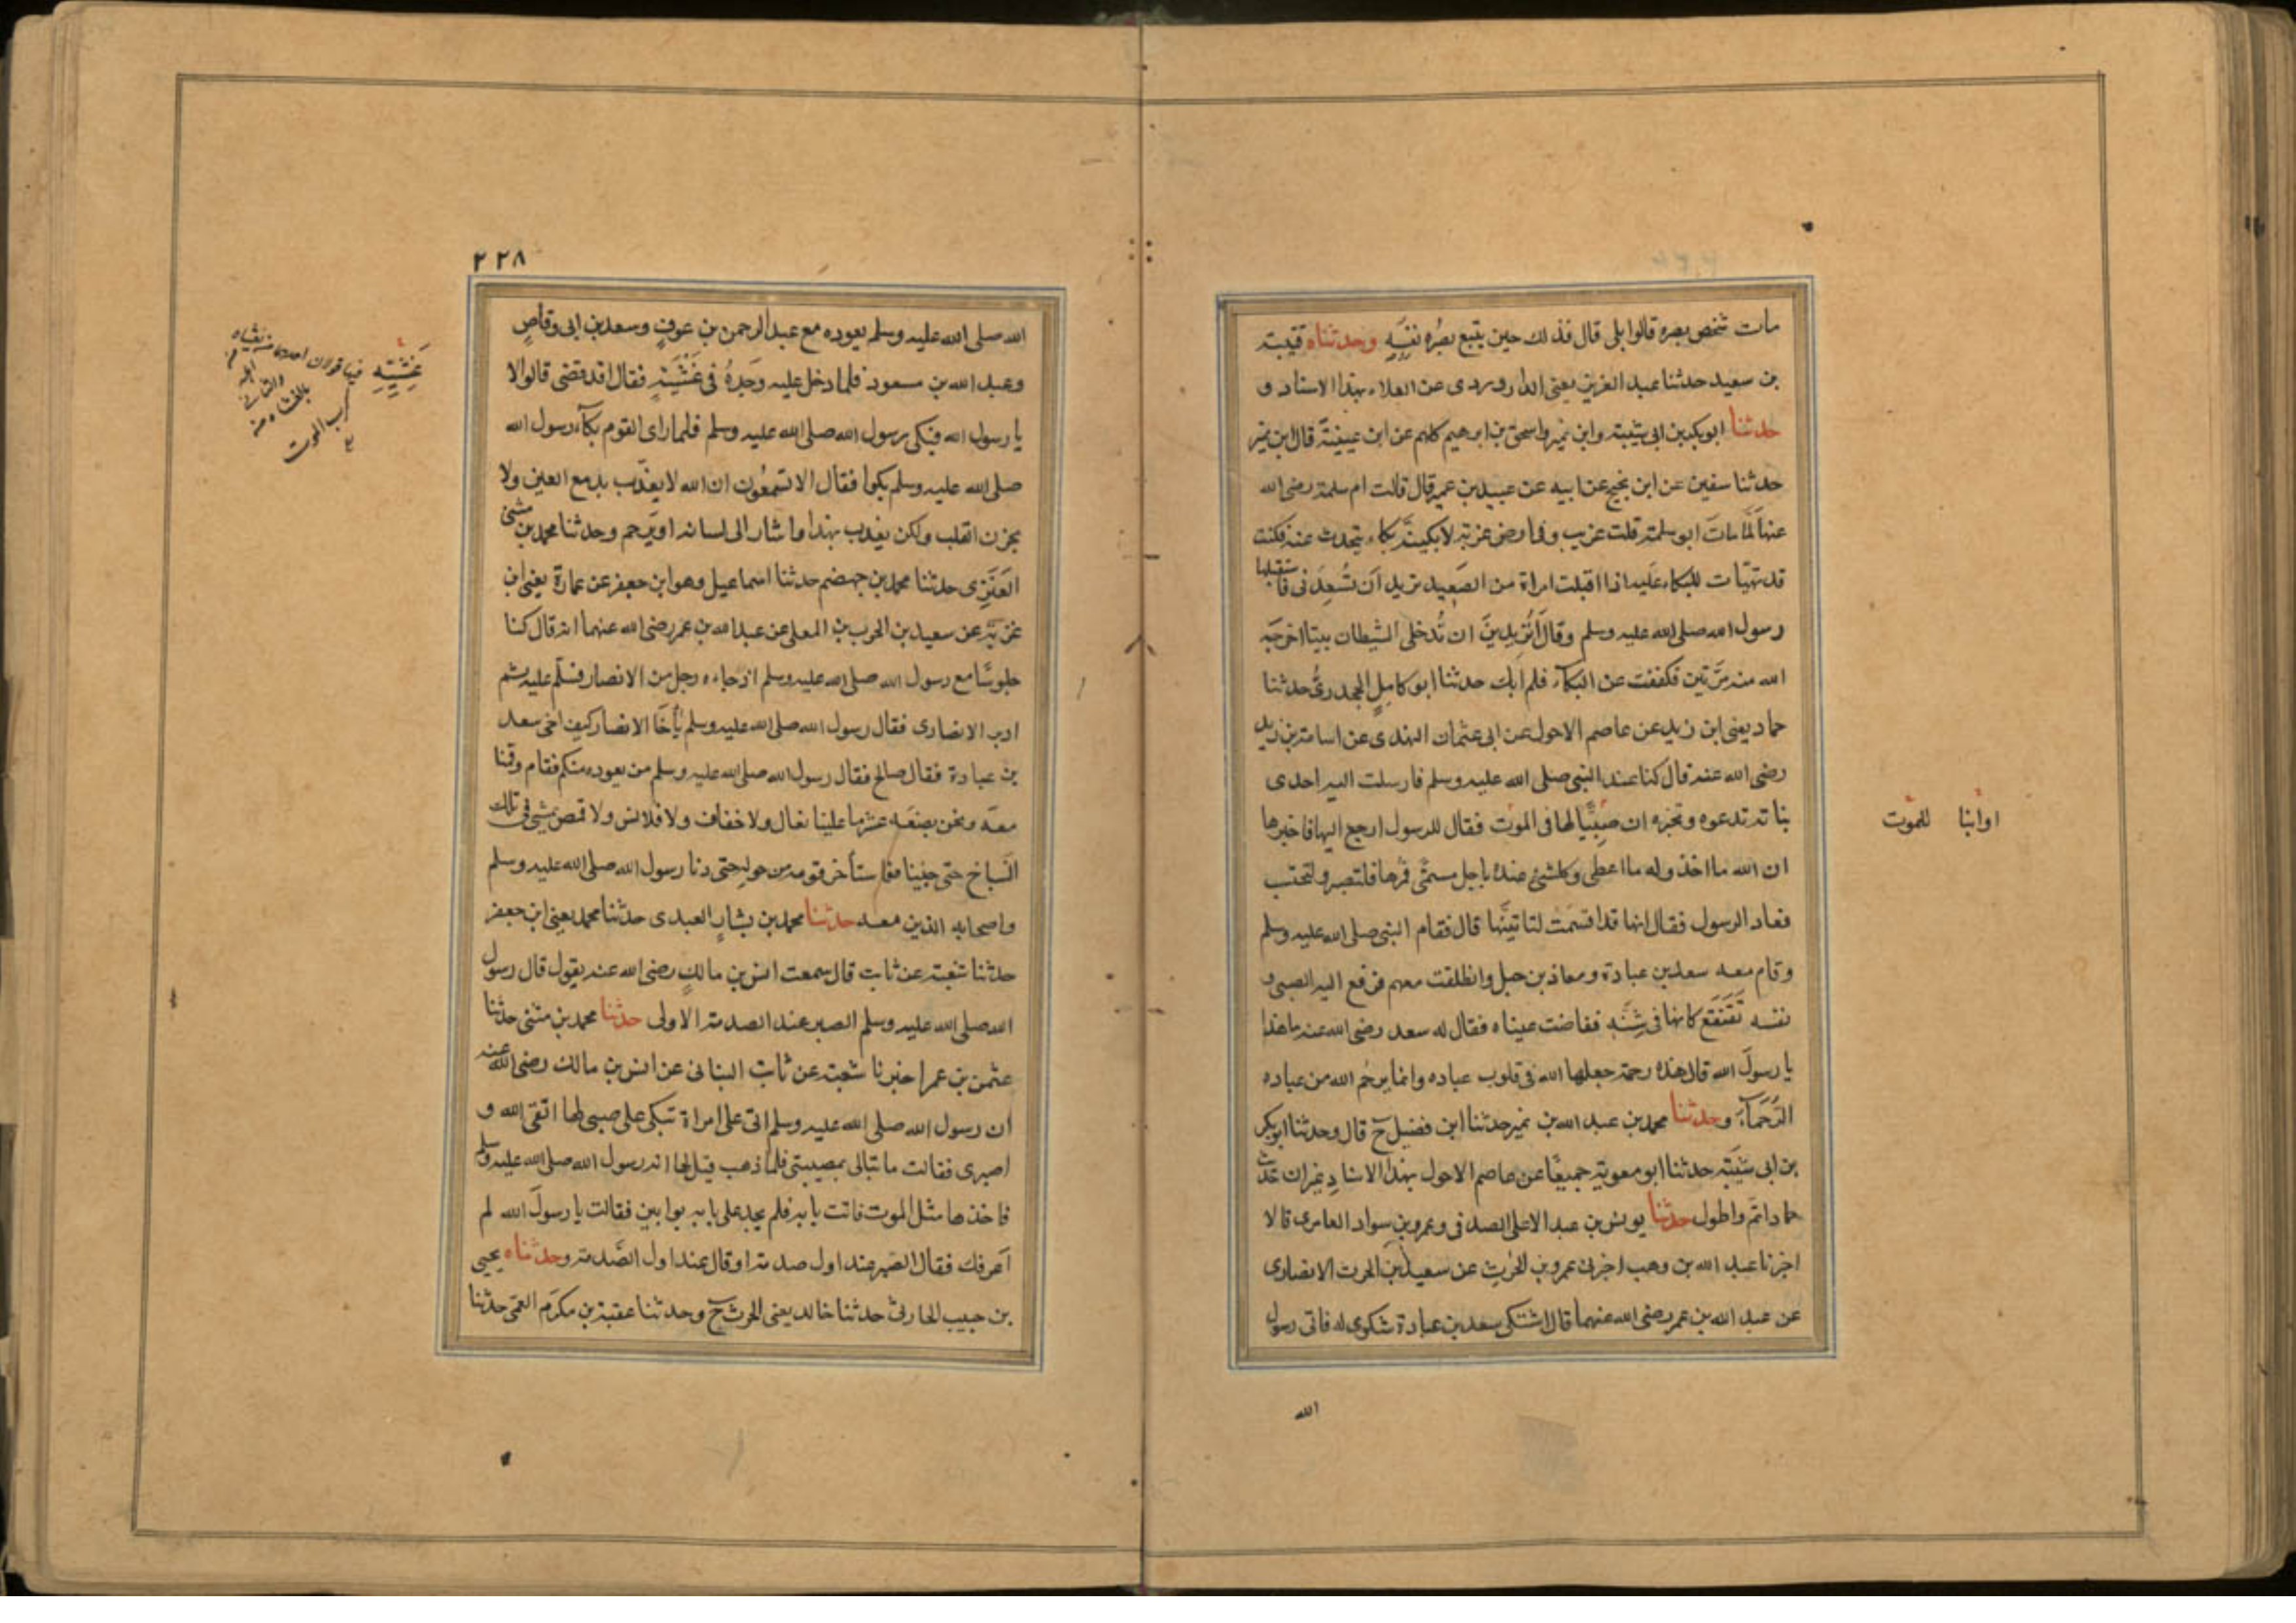 مات شخص بصره قالوا بلى قال فذلك حين يتبع بصُره نفسَه وحدثناه قتيبة
بن سعيد حدثنا عبد العزيز يعنى الدراوردى عن العلاء بهذا الاسناد و
حدثنا ابو بكر بن ابى شيبة وابن نمير واسحق بن ابرهيم كلهم عن ابن عيينة قال ابن نمير
حدثنا سفين عن ابن نجيح عن ابيه عن عبيد بن عمير قال قالت ام سلمة رضى الله
عنها لمّا مات ابو سلمة قلت غريب وفى ارض غربة لابكينّه بكاء يتحدث عنه فكنت
قد تهيّات للبكاء عليه اذا اقبلت امراة من الصَعِيد تريد ان تُسْعِدَنى فاستقبلها
رسول الله صلى الله عليه وسلم وقال أتريدينَ ان تُدخلى الشيطان بيتا اخرجه
الله منه مرّتين فكففت عن البكآء فلم ابك حدثنا ابو كامِلٍ الجحدرىُّ حدثنا
حماد يعنى ابن زيد عن عاصم الاحول عن ابى عثمان النهدى عن اسامة بن زيد
رضى الله عنه قال كنا عند النبى صلى الله عليه وسلم فارسلت اليه احدى
بناته تدعوه وتخبره ان صَبِيًّا لها فى الموت فقال للرسول ارجع اليها فاخبرها
ان الله ما اخذ وله ما اعطى وكلشئ عنده باجل مسمّى فمُرها فلتصبر ولتحتسب
فعاد الرسول فقال انها قد اقسمَتْ لتاتينّها قال فقام النبى صلى الله عليه وسلم
وقام معه سعد بن عبادة ومعاذ بن جبل وانطلقت معهم فرفع اليه الصبى و
نفسه تَقَعْقَع كانها فى شَنَّه ففاضت عيناه فقال له سعد رضى الله عنه ما هذا
يا رسولَ الله قال هذه رحمة جعلها الله فى قلوب عباده وانما يرحَم الله من عباده
الرُّحَمآءَ وحدثنا محمد بن عبد الله بن نمير حدثنا ابن فضيل ح قال وحدثنا ابو بكر
بن ابى شيبَة حدثنا ابو معوية جميعًا عن عاصم الاحول بهذا الاسنادِ غير ان حديث
حماد اتم واطول حدثنا يونس بن عبد الاعلى الصدفى وعمرو بن سواد العامرى قالا
اخبرنا عبد الله بن وهب اخبرنى عمرو بن الحرثِ عن سعيد بن الحرث الانصارى
عن عبد الله بن عمر رضى الله عنهما قال اشتكى سعد بن عبادة شكوى له فاتى رسول
الله
او ابنا للموت
٢٢٨
الله صلى الله عليه وسلم يعوده مع عبد الرحمن بن عوفٍ وسعد بن ابى وقاصٍ
وعبد الله بن مسعود فلما دخل عليه وَجَدهُ فى غَشْيَتِهِ فقال اقد قضى قالوا لا
يا رسول الله فبكى رسول الله صلى الله عليه وسلم فلما راى القوم بكآء رسول الله
صلى الله عليه وسلم بكوا فقال الا تسمعُون ان الله لا يعذّب بدمع العين ولا
بحزن القلب ولكن يعذب بهذا واشار الى لسانه او يَرحم وحدثنا محمد بن مثنى
العَنَزِى حدثنا محمد بن جهضم حدثنا اسماعيل وهو ابن جعفر عن عمارة يعنى ابن
غزيّة عن سعيد بن الحرث بن المعلى عن عبد الله بن عمر رضى الله عنهما انه قال كنا
جلوسًا مع رسول الله صلى الله عليه وسلم اذ جاءه رجل من الانصار فسلّم عليه ثم
ادبر الانصارى فقال رسول الله صلى الله عليه وسلم يآ اخَا الانصار كيف اخى سعد
بن عبادة فقال صالح فقال رسول الله صلى الله عليه وسلم من يعوده منكم فقام وقمنا
معَه ونحن بضعَة عشر ما علينا نعال ولا خفاف ولا قلانس ولا قمص نمشى فى تلك
السّباخ حتى جئنا فاستأخر قومه من حوله حتى دنا رسول الله صلى الله عليه وسلم
واصحابه الذين معه حدثنا محمد بن بشارٍ العبدى حدثنا محمد يعنى ابن جعفر
حدثنا شعبة عن ثابت قال سمعت انس بن مالكٍ رضى الله عنه يقول قال رسول
الله صلى الله عليه وسلم الصبر عند الصدمة الاولى حدثنا محمد بن مثنى حدثنا
عثمن بن عمر اخبرنا شعبة عن ثابت البنانى عن انس بن مالك رضى الله عنه
ان رسول الله صلى الله عليه وسلم اتى على امراة تبكى على صبى لها اتقى الله و
اصبرى فقالت ما تبالى بمصيبتى فلما ذهب قيل لها انه رسول الله صلى الله عليه وسلم
فاخذها مثل الموت فاتت بابه فلم يجد على بابه بوابين فقالت يا رسولَ الله لم
اَعرفك فقال الصبر عند اول صدمة او قال عند اول الصَّدمة وحدثناه يحيى
بن حبيب الحارثى حدثنا خالد يعنى الحرث ح وحدثنا عقبة بن مكرَم العمّى حدثنا
غَشْيَتِهِ فيها قولان احدهما من يغشاه
اهله
والثانى
ما يغشاه من
كرب الموت